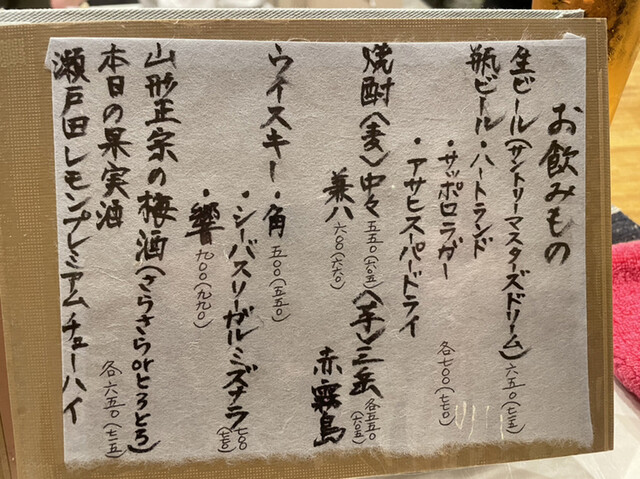 お飲みもの
生ビール(サントリーマスターズドリーム)六五〇(七一五)
瓶ビール・ハートランド
・サッポロラガー
・アサヒスーパードライ
各七〇〇(七七〇)
焼酎(麦)中々五五〇(六〇五)(芋)三岳各五五〇(六〇五)
兼八六〇〇(六六〇)赤霧島
ウイスキー・角五〇〇(五五〇)
・シーバスリーガルミズナラ七〇〇(七七〇)
・響九〇〇(九九〇)
山形正宗の梅酒(さらさらorとろとろ)
本日の果実酒各六五〇(七一五)
瀬戸田レモンプレミアムチューハイ